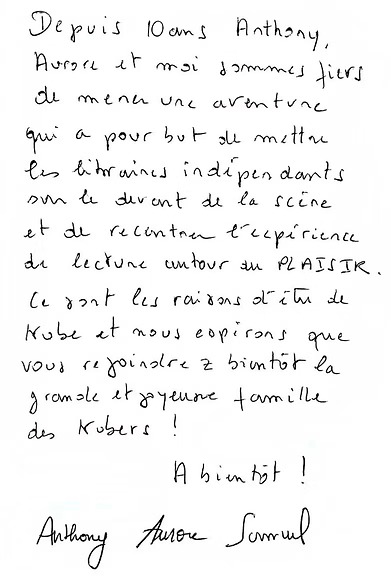 Depuis 10 ans Anthony,
Aurore et moi sommes fiers
de mener une aventure
qui a pour but de mettre
les libraires indépendants
sur le devant de la scène
et de recentrer l'expérience
de lecture autour du PLAISIR.
Ce sont les raisons d'être de
Kube et nous espérons que
vous rejoindrez bientôt la
grande et joyeuse famille
des Kubers !
A bientôt !
Anthony Aurore Samuel